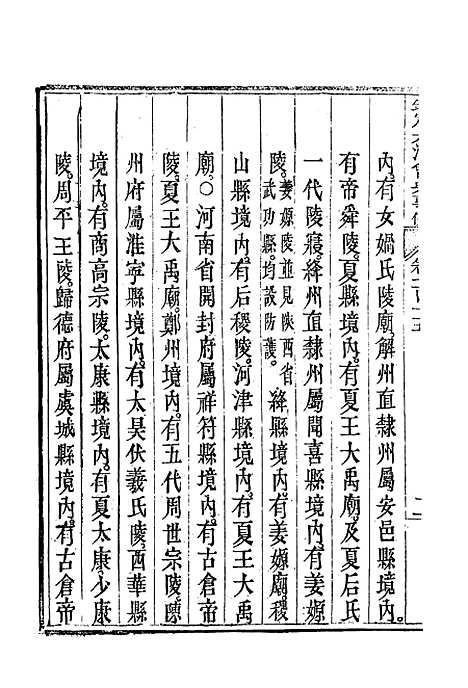 內。有女媧氏陵廟。解州直隸州屬安邑縣境內。
有帝舜陵。夏縣境內。有夏王大禹廟。及夏后氏
一代陵寢。絳州直隸州屬聞喜縣境內。有姜嫄
陵。姜嫄陵並見陝西省武功縣。均設防護。絳縣境內。有姜嫄廟。稷
山縣境內。有后稷陵。河津縣境內。有夏王大禹
廟。○河南省開封府屬祥符縣境內。有古倉帝
陵。夏王大禹廟。鄭州境內。有五代周世宗陵。陳
州府屬淮寧縣境內。有太昊伏羲氏陵。西華縣
境內。有商高宗陵。太康縣境內。有夏太康。少康
陵。周平王陵。歸德府屬虞城縣境內。有古倉帝